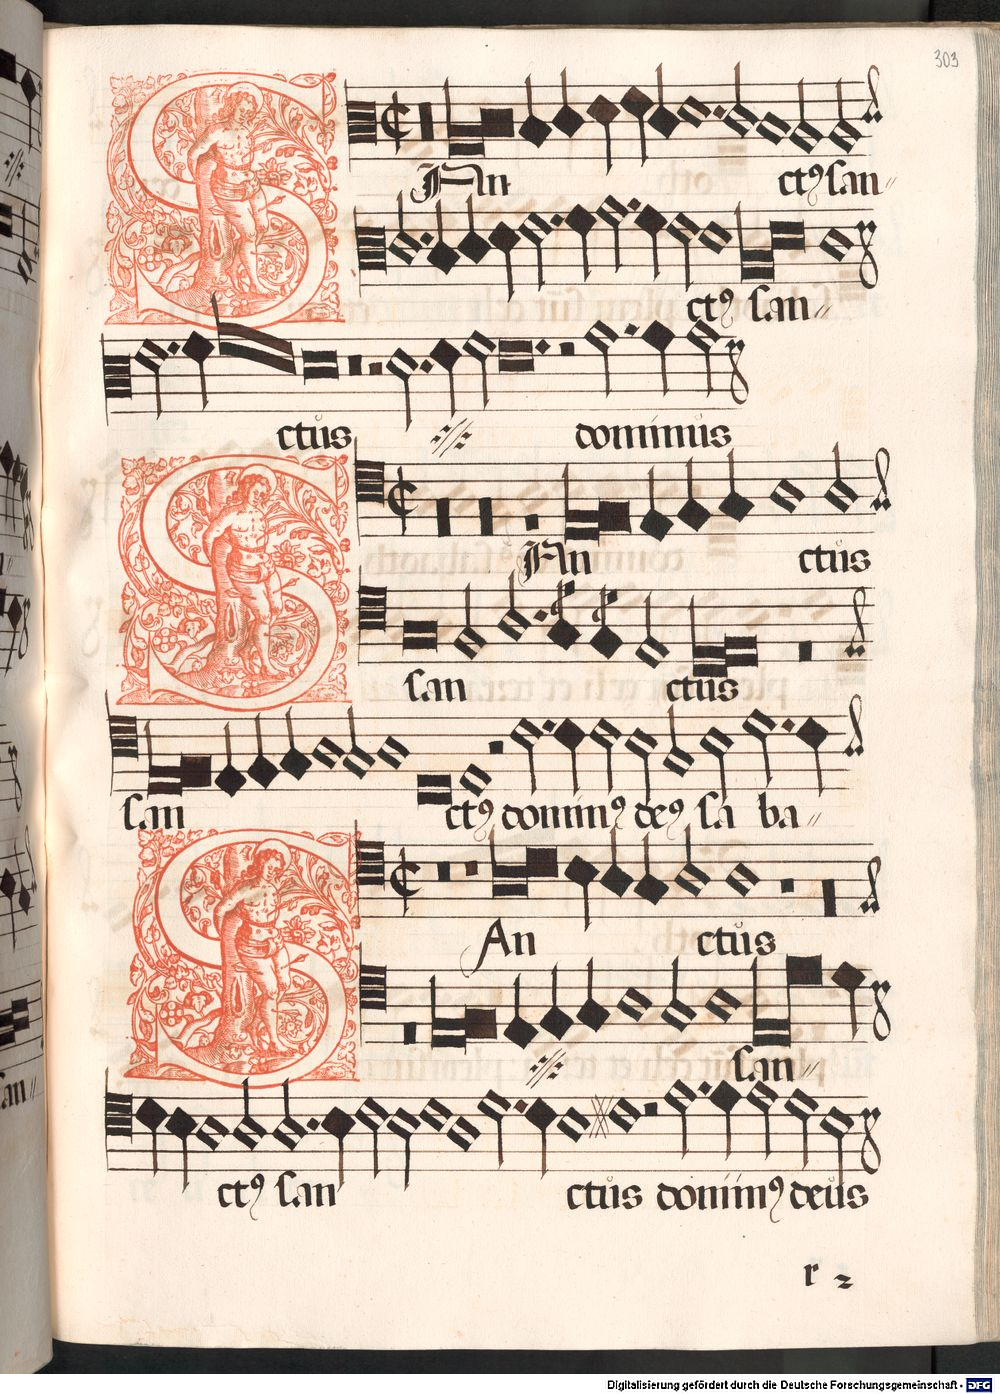 303
SAn ctꝰ san〃
ctꝰ san〃
ctus dominus
SAn ctus
san ctus
san ctꝰ dominꝰ deꝰ sa ba〃
SAn ctus
san〃
ctꝰ san ctus dominꝰ deus
r 2
Digitalisierung gefördert durch die Deutsche Forschungsgemeinschaft - DFG